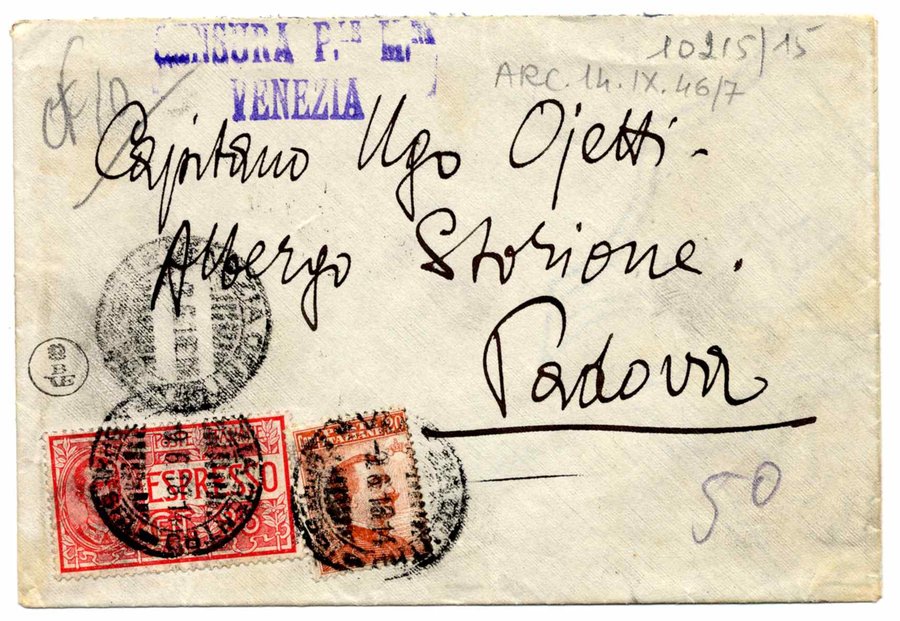 CENSURA P.le M.re
VENEZIA
10215/15
ARC. 14.IX.46/7
Capitano Ugo Ojetti -
Albergo Storione.
Padova
POSTE
ESPRESSO
50